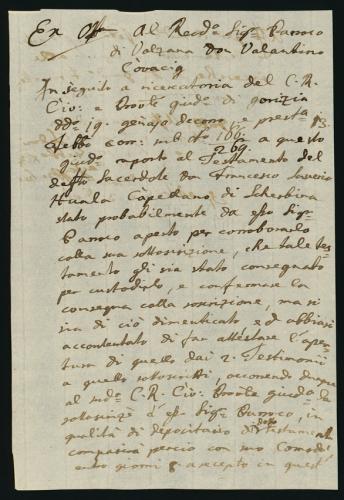 Ex Offo Al Revdo Sigr Parroco
di Volzana Don Valantino
Covacig
In seguito a ricercatoria del C. R.
Civ: e Provle giudo: di gorizia
ddo 19. genajo decorso, e presta 13
Febbo corr: sub No 166. a questo
269.
giudo rapporto al Testamento del
defto Sacerdote Don Francesco Saverio
Capellano di Scherbina
stato probabilmente da esso Sigr
Parroco aperto per corroborarlo
colla sua sottoscrizione, che tale tes-
tamento gli sia stato consegnato
per custodirlo, e confermare la
consegna colla soscrizione, ma si
sia di ciò dimenticato e d'abbiasi
accontentato di far attestare l'aper-
tura di quello dai 2 Testimonii
a quello sottoscritti, occorrendo dunque
al sudo C. R. Civ. Provle giudo la
esso Sigr Parroco, in
qualità di depositario di detto Testamento
comparirà perciò con suo Comodo
entro giorni 8 a recepto in quest